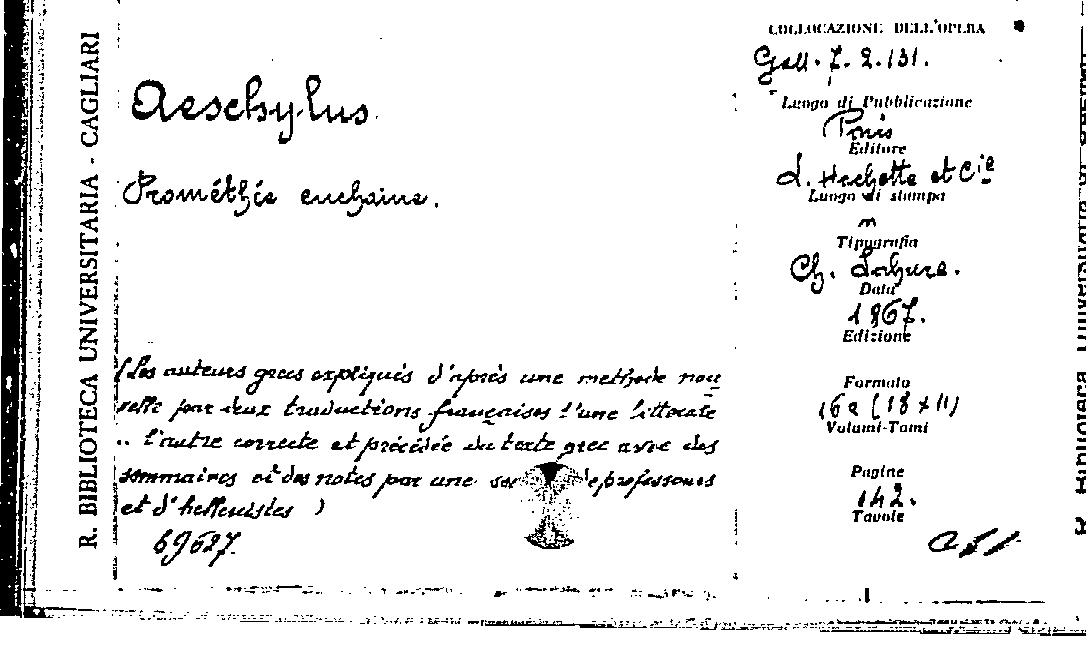 R. BIBLIOTECA UNIVERSITARIA - CAGLIARI
Aeschylus
Prométhée enchainé.
(Les auteurs grecs expliqués d'après une methode nou
velle par deux traductions françaises l'une litterale
l'autre correcte et précédée du texte grec avec des
sommaires et des notes par une de professeurs
et d'hellenistes )
69627.
COLLOCAZIONE DELL'OPERA
Gall. 7. 2. 131.
Luogo di Pubblicazione
Paris
Editore
L. Hachette et Cie
Luogo di stampa
Tipografia
Ch. Lahure.
Data
1867.
Edizione
Formato
16º (18 x 11)
Volumi-Tomi
Pagine
142.
Tavole